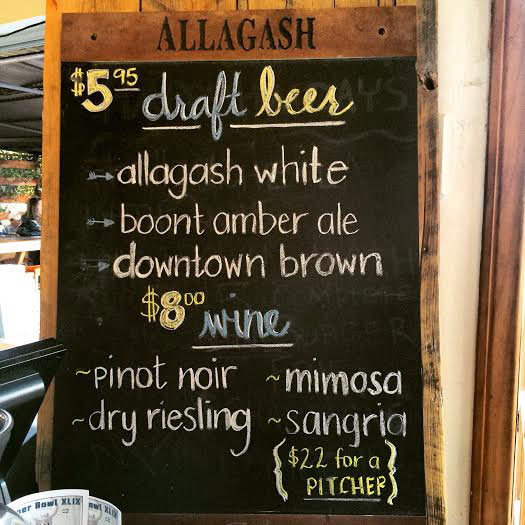 ALLAGASH
$5.95 draft beer
allagash white
boont amber ale
downtown brown
$8.00 wine
~pinot noir ~mimosa
~dry riesling ~sangria
{$22 for a
PITCHER}
Bowl XLIX
Bowl XLIX